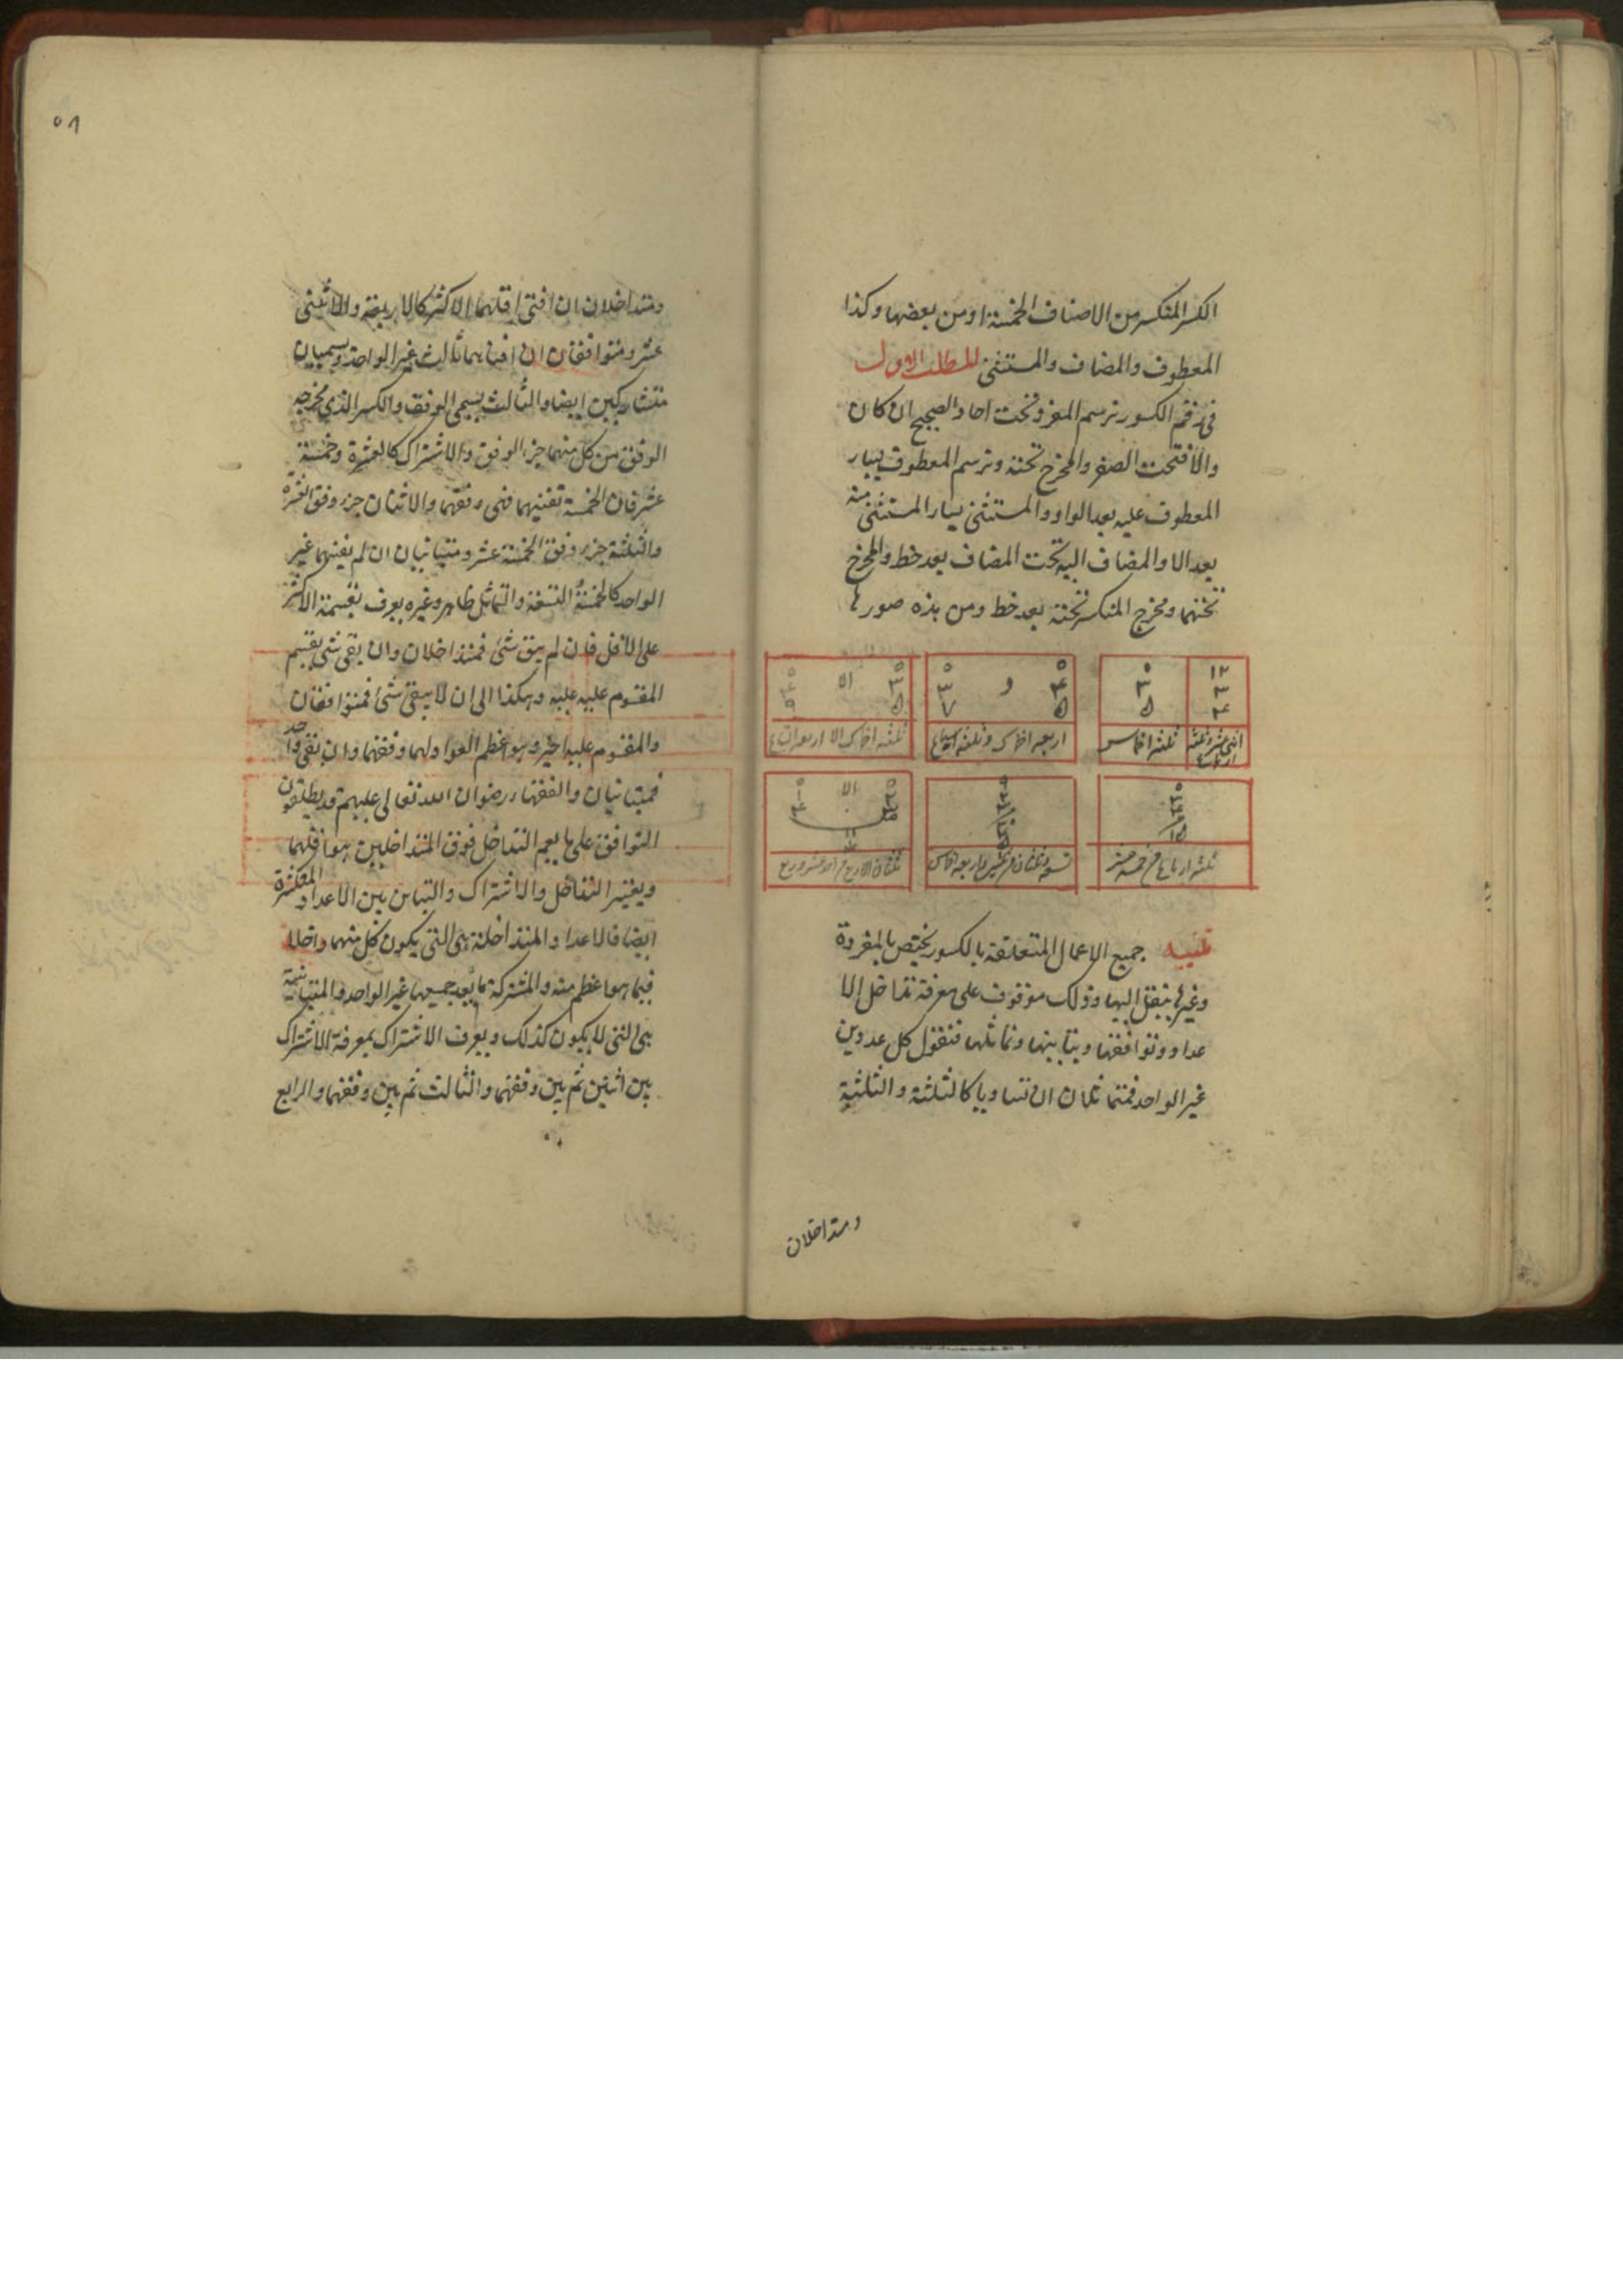 الكسر المنكسر من الاصناف الخمسة او من بعضها وكذا
المعطوف والمضاف والمستثنى المطلب الاول
فى رقم الكسور ترسم المفرد تحت احاد الصحيح ان كان
والا فتحت الصفر والمخرج تحته وترسم المعطوف بيسار
المعطوف عليه بعد الواو والمستثنى بيسار المستثنى منه
بعد الا والمضاف اليه تحت المضاف بعد خط والمخرج
تحتهما ومخرج المنكسر تحته بعد خط ومن هذه صورها
١٢ ٣ ۴
اثنى عشر وثلثة ارباع
٠ ٣ ۵
ثلثة اخماس
٠ ۴ ۵ و ٠ ٣ ٧
اربعة اخماس وثلثة اسباع
٠ ٣ ۵ الا
ثلثة اخماس الا
ثلثة ارباع من خمسة عشر
الا
تنبيه جميع الاعمال المتعلقة بالكسور يختص بالمفردة
وغيرها ينتقل اليها وذلك موقوف على معرفة تداخل الا
عداد وتوافقها وتباينها وتماثلها فنقول كل عددين
غير الواحد فمتماثلان ان تساويا كالثلثة والثلثة
ومتداخلان
٥٨
ومتداخلان ان افنى اقلهما الاكثر كالاربعة والاثنى
عشر ومتوافقان ان افناهما ثالث غير الواحد ويسميان
متشاركين ايضا والثالث يسمى الوفق والكسر الذى مخرجه
الوفق من كل منهما جزء الوفق والاشتراك كالعشرة وخمسة
عشر فان الخمسة تفنيهما فهى وفقهما والاثنان جزء وفق العشرة
والثلثة جزء وفق الخمسة عشر ومتباينان ان لم يفنهما غير
الواحد كالخمسة والتسعة والتماثل ظاهر وغيره يعرف بقسمة الاكثر
على الاقل فان لم يبق شئ فمتداخلان وان بقى شئ يقسم
المقسوم عليه عليه وهكذا الى ان لا يبقى شئ فمتوافقان
والمقسوم عليه اخيرا هو اعظم العواد لهما وفقهما وان بقى واحد
فمتباينان والفقهاء رضوان الله تعالى عليهم قد يطلقون
التوافق على ما يعم التداخل فوفق المتداخلين هو اقلهما
ويعتبر التداخل والاشتراك والتباين بين الاعداد المتكثرة
ايضا فالاعداد المتداخلة هى التى يكون كل منها داخلا
فيما هو اعظم منه والمشتركة ما يعد جميعها غير الواحد والمتباينة
هى التى لا يكون كذلك ويعرف الاشتراك بمعرفة الاشتراك
بين اثنين ثم بين وفقهما والثالث ثم بين وفقهما والرابع